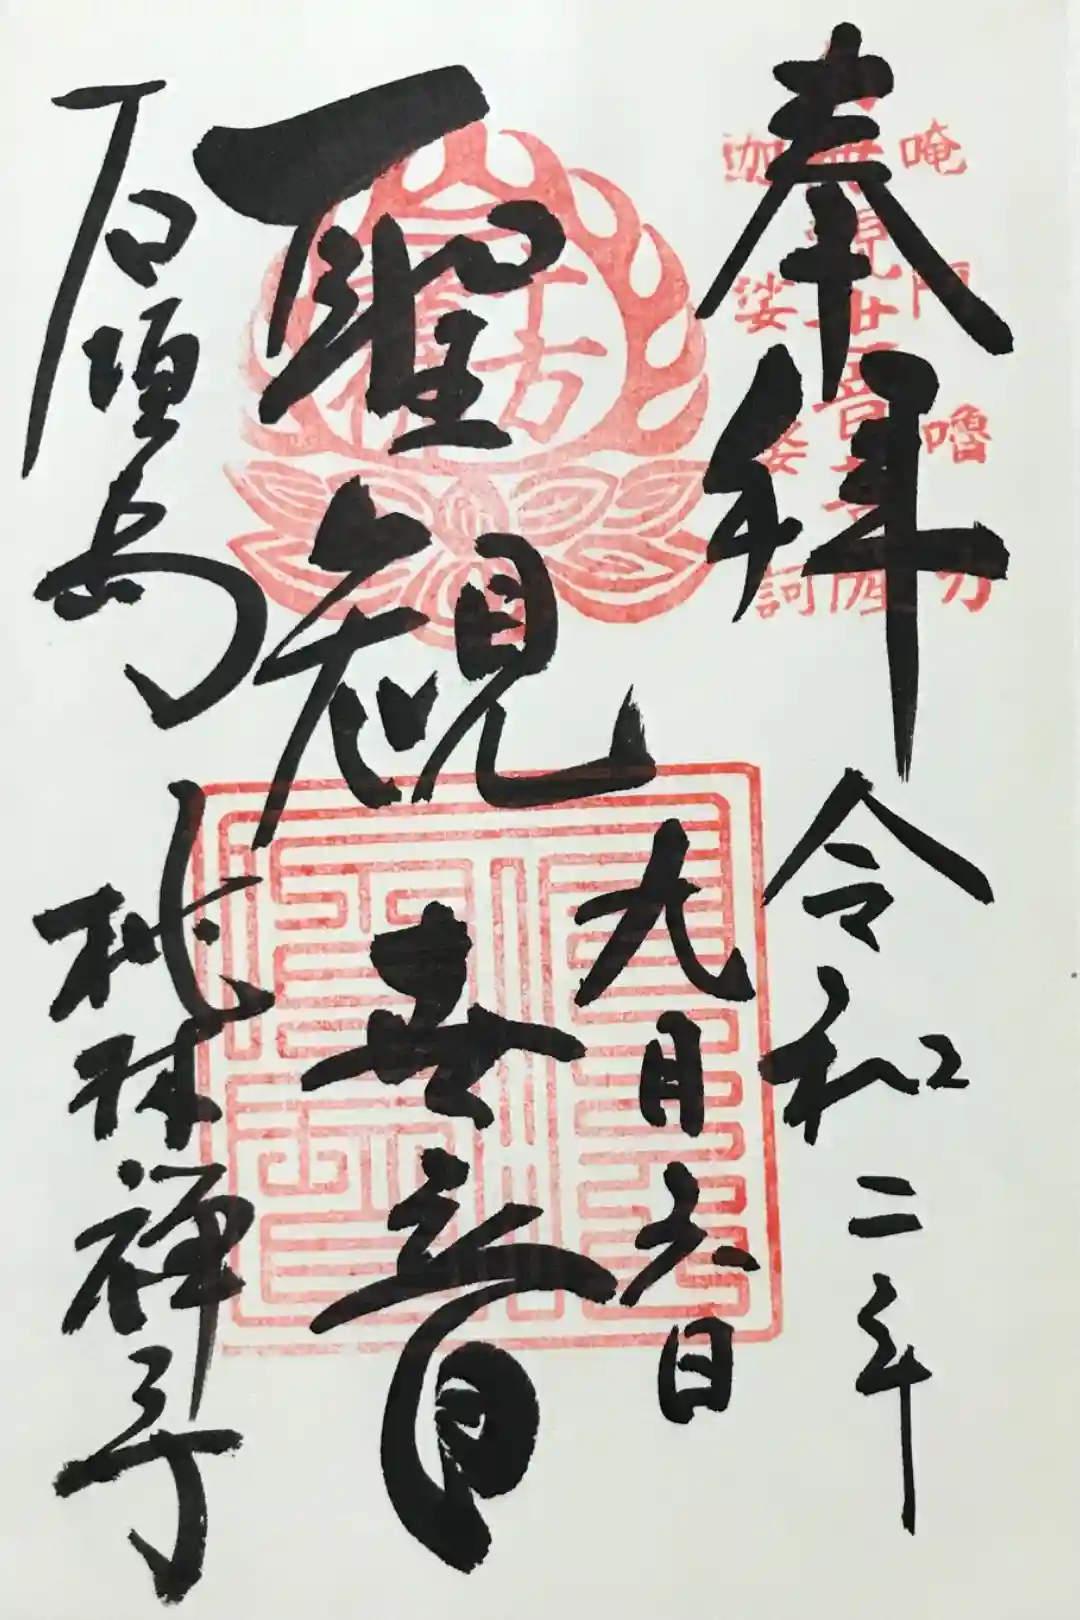 奉拝
令和二年
九月六日
聖観世音
石垣島
桃林禅寺
唵
嚕